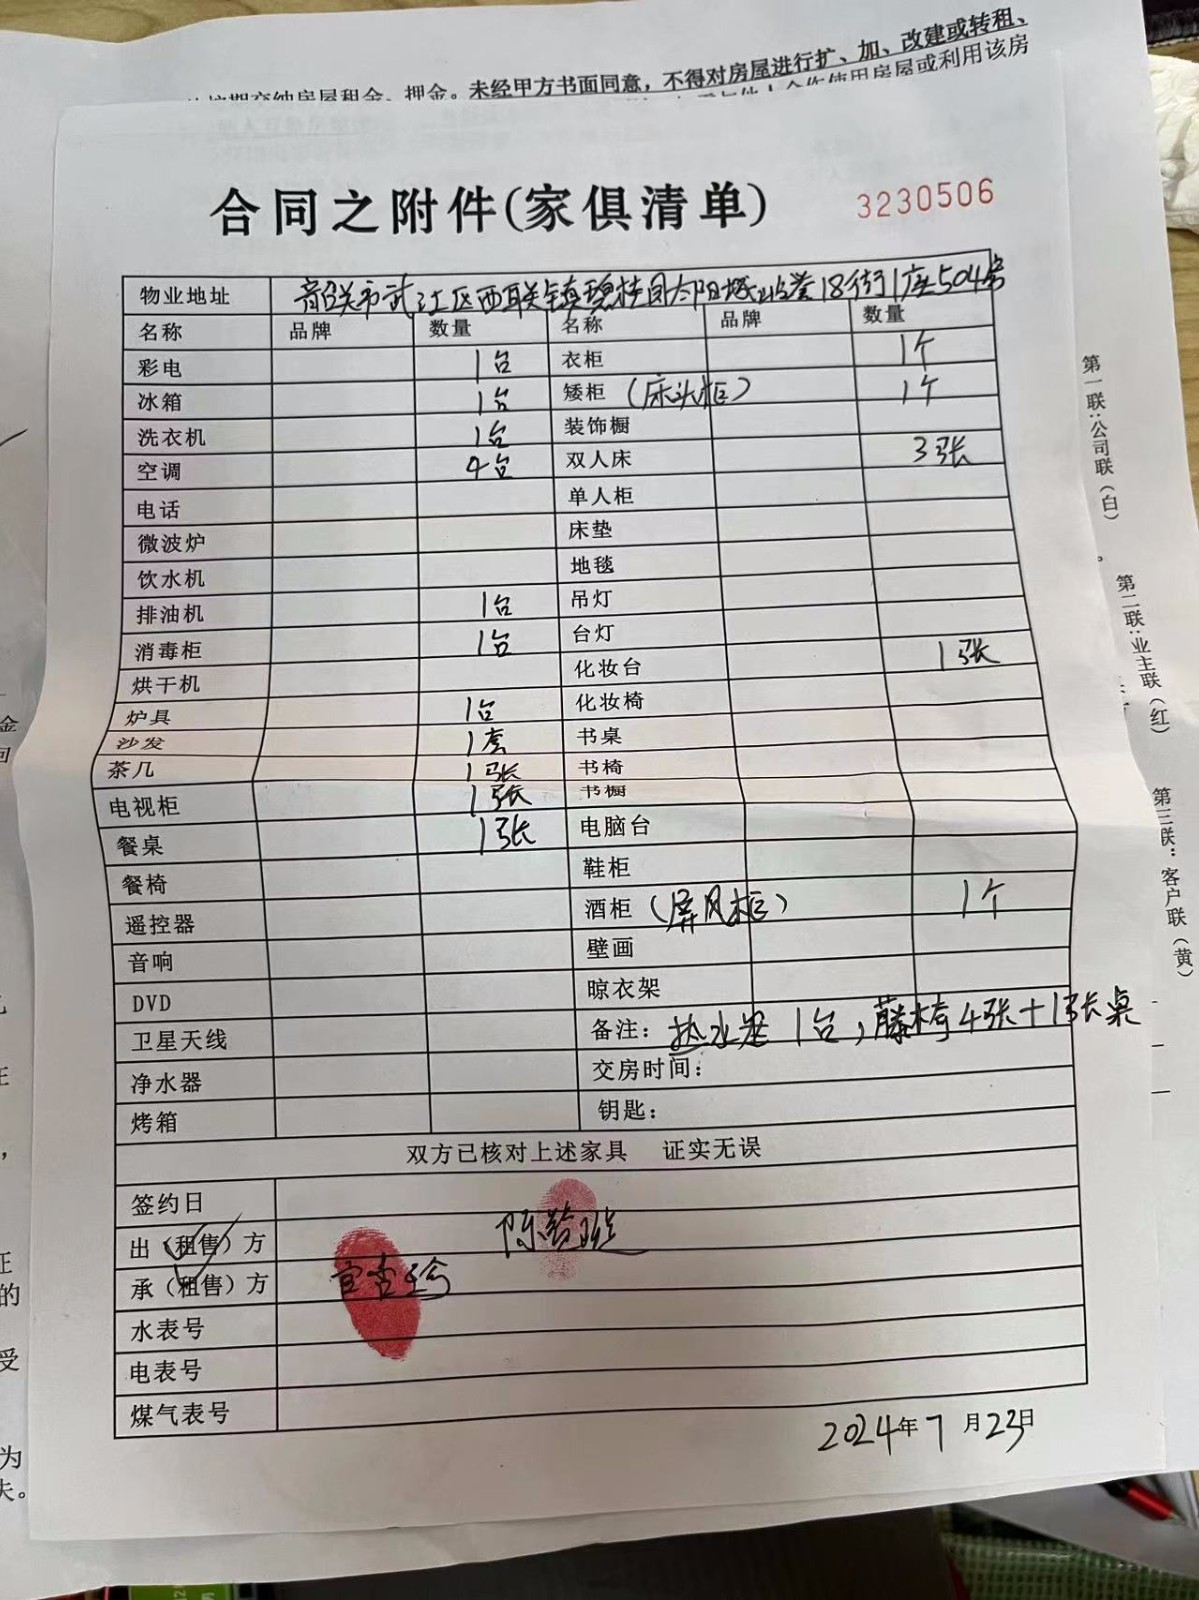 未经甲方书面同意，不得对房屋进行扩、加、改建或转租、
合同之附件(家俱清单)
3230506
物业地址 韶关市武江区西联镇碧桂园太阳城山誉18街1座504号
名称 品牌 数量 名称 品牌 数量
彩电 1台 衣柜 1个
冰箱 1台 矮柜（床头柜） 1个
洗衣机 1台 装饰橱
空调 4台 双人床 3张
电话 单人柜
微波炉 床垫
饮水机 地毯
排油机 1台 吊灯
消毒柜 1台 台灯
烘干机 化妆台 1张
炉具 1台 化妆椅
沙发 1套 书桌
茶几 1张 书椅
电视柜 1张 书橱
餐桌 1张 电脑台
餐椅 鞋柜
遥控器 酒柜（屏风柜） 1个
音响 壁画
DVD 晾衣架
卫星天线 备注：热水器1台，藤椅4张+1张桌
净水器 交房时间：
烤箱 钥匙：
双方已核对上述家具 证实无误
签约日
出（租售）方
承（租售）方
水表号
电表号
煤气表号
2024年7月23日
第一联：公司联（白）
第二联：业主联（红）
第三联：客户联（黄）